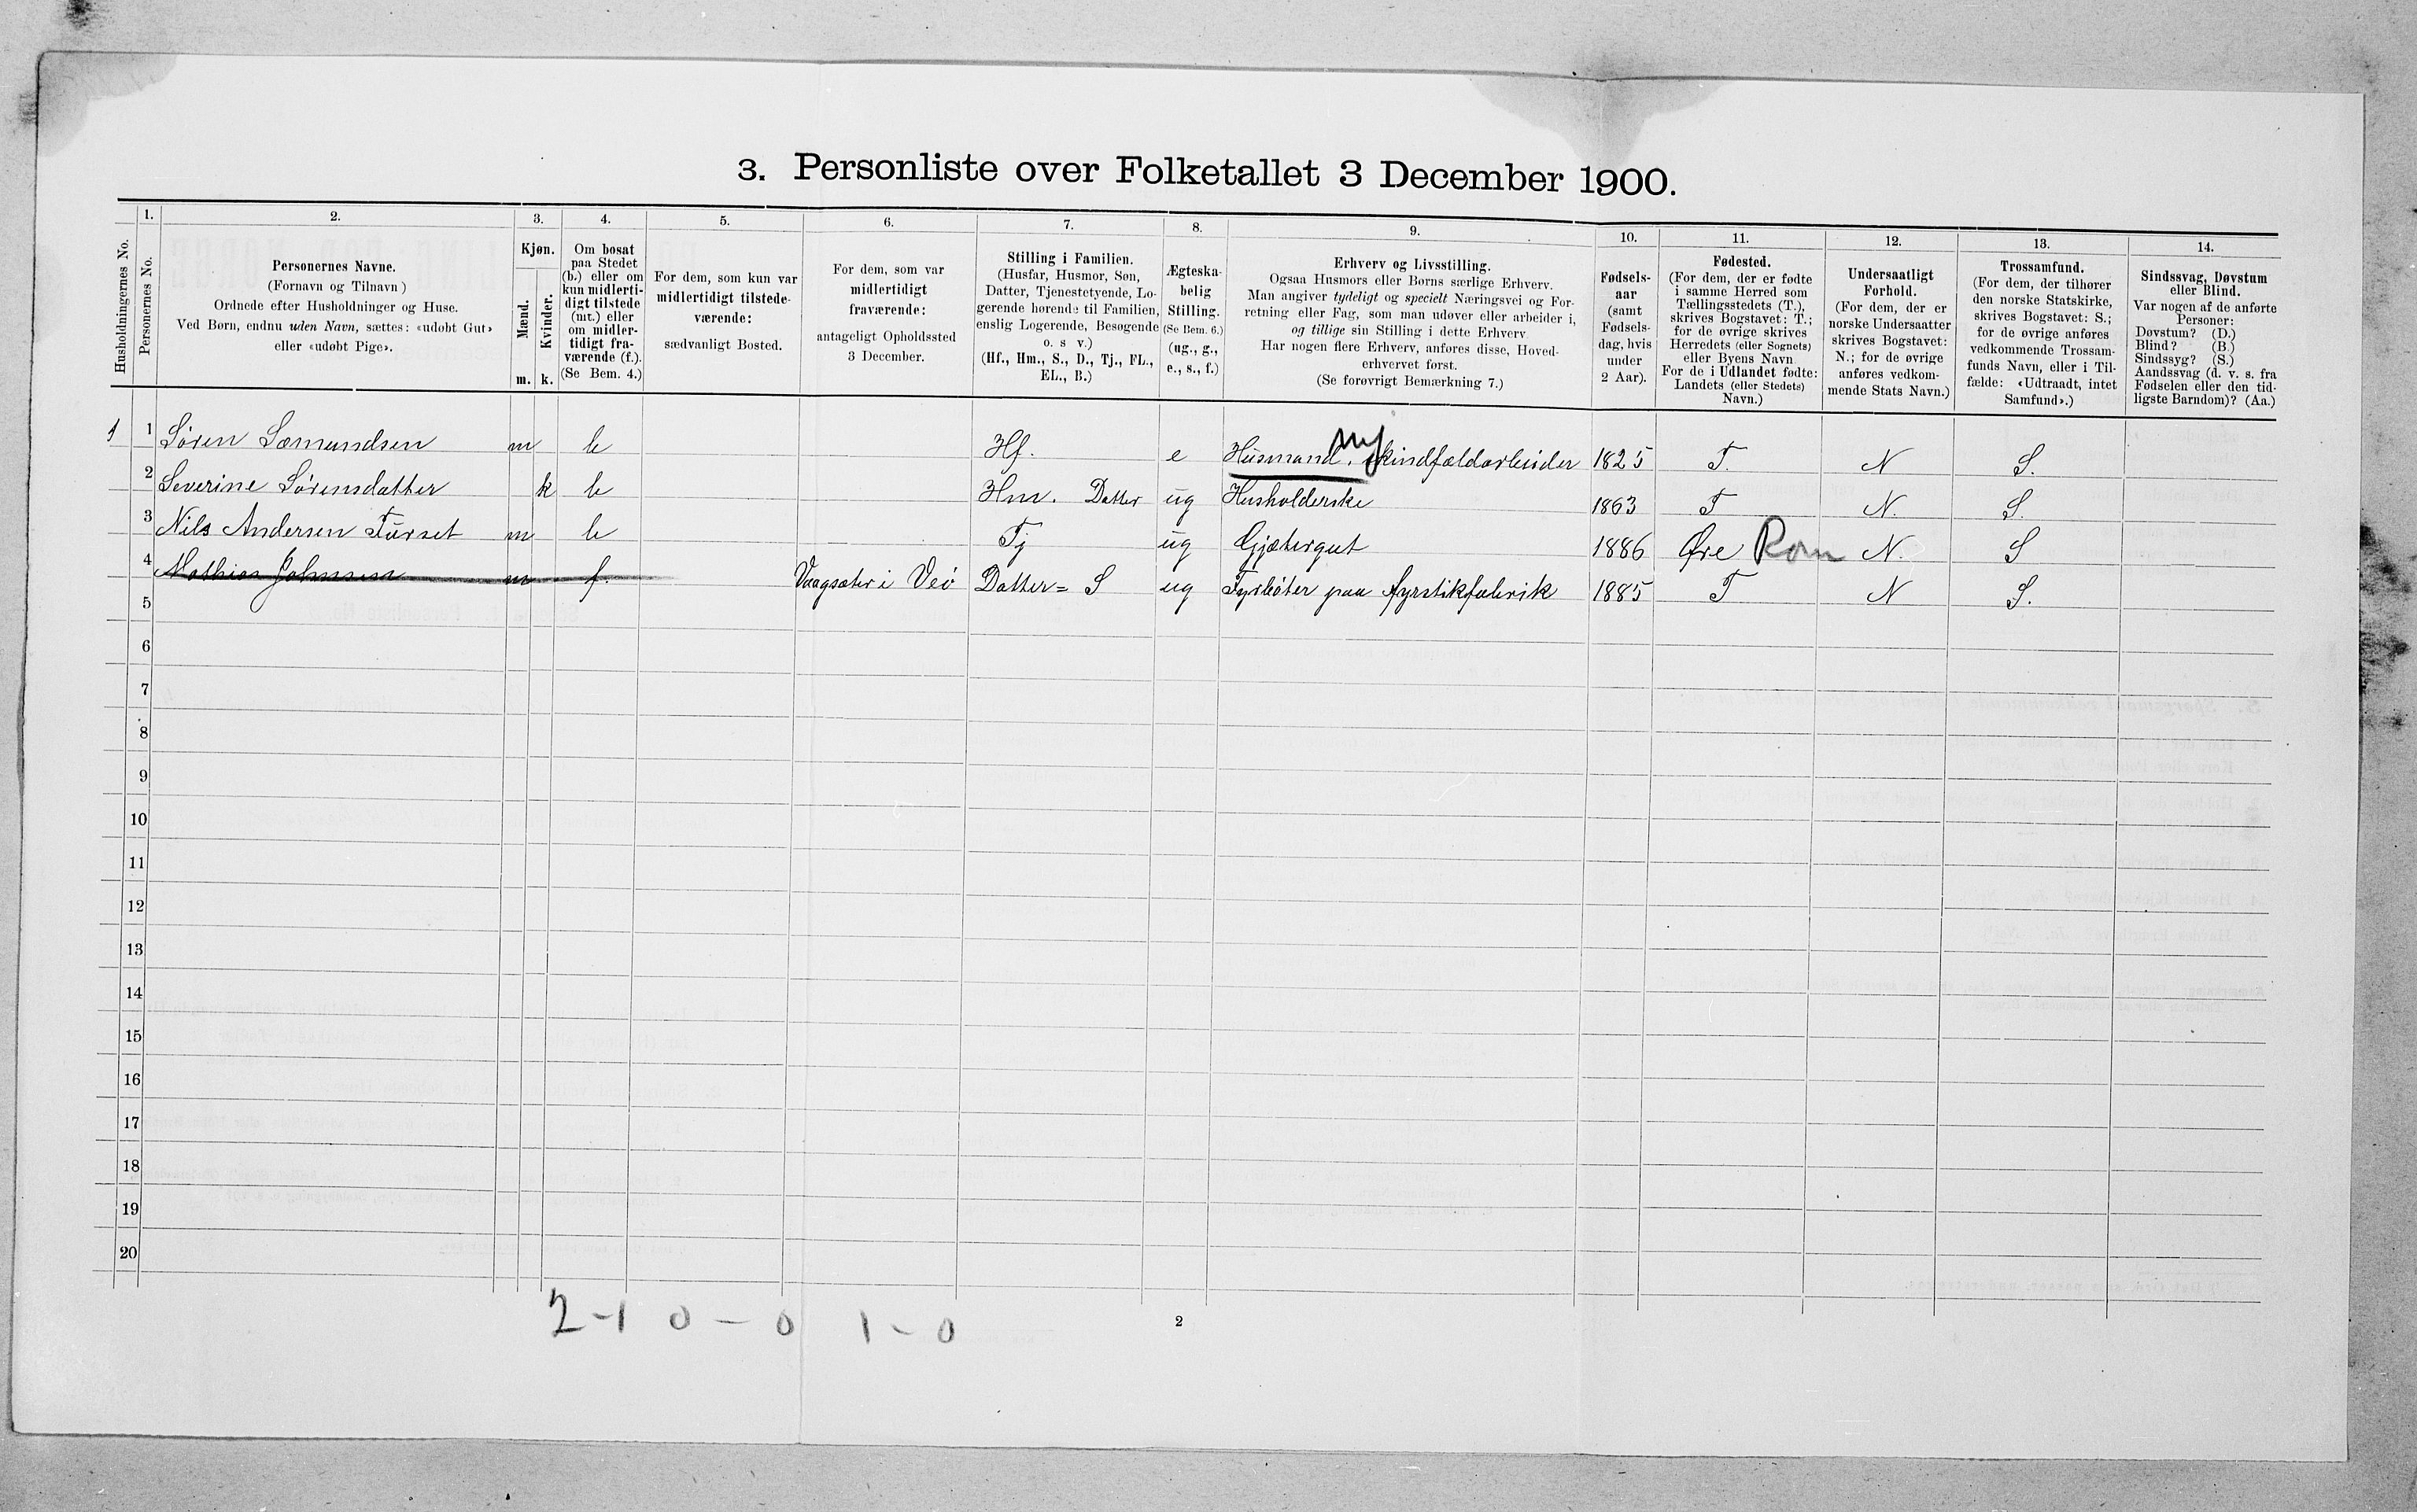 3. Personliste over Folketallet 3 December 1900.
Husholdningernes No.
1.
Personernes No.
2.
Personernes Navne.
(Fornavn og Tilnavn)
Ordnede efter Husholdninger og Huse.
Ved Børn, endnu uden Navn, sættes: «udøbt Gut»
eller «udøbt Pige».
3.
Kjøn.
Mænd.
Kvinder.
m. k.
4.
Om bosat
paa Stedet
(b.) eller om
kun midlerti-
digt tilstede
(mt.) eller
om midler-
tidigt fra-
værende (f.).
(Se Bem. 4.)
5.
For dem, som kun var
midlertidigt tilstede-
værende:
sædvanligt Bosted.
6.
For dem, som var
midlertidigt
fraværende:
antageligt Opholdssted
3 December.
7.
Stilling i Familien.
(Husfar, Husmor, Søn,
Datter, Tjenestetyende, Lo-
gerende hørende til Familien,
enslig Logerende, Besøgende
o. s v.)
(Hf., Hm., S., D., Tj., FL.,
EL., B.)
8.
Ægteska-
belig
Stilling.
(Se Bem. 6.)
(ug., g.,
e., s., f.)
9.
Erhverv og Livsstilling.
Ogsaa Husmors eller Børns særlige Erhverv.
Man angiver tydeligt og specielt Næringsvei og For-
retning eller Fag, som man udøver eller arbeider i,
og tillige sin Stilling i dette Erhverv.
Har nogen flere Erhverv, anføres disse, Hoved-
erhvervet først.
(Se forøvrigt Bemærkning 7.)
10.
Fødsels-
aar
(samt
Fødsels-
dag, hvis
under
2 Aar).
11.
Fødested.
(For dem, der er fødte
i samme Herred som
Tællingsstedets (T.),
skrives Bogstavet: T.;
for de øvrige skrives
Herredets (eller Sognets)
eller Byens Navn
For de i Udlandet fødte:
Landets (eller Stedets)
Navn.)
12.
Undersaatligt
Forhold.
(For dem, der er
norske Undersaatter
skrives Bogstavet:
N.; for de øvrige
anføres vedkom-
mende Stats Navn.)
13.
Trossamfund.
(For dem, der tilhører
den norske Statskirke,
skrives Bogstavet: S.;
for de øvrige anføres
vedkommende Trossam-
funds Navn, eller i Til-
fælde: «Udtraadt, intet
Samfund».)
14.
Sindssvag, Døvstum
eller Blind.
Var nogen af de anførte
Personer:
Døvstum? (D.)
Blind? (B.)
Sindssyg? (S.)
Aandssvag (d. v. s. fra
Fødselen eller den tid-
ligste Barndom)? (Aa.)
1 1 Sören Sæmundsen m b Hf. e Husmand. Skindfældarbeider 1825 T. N S.
2 Severine Sörensdatter k b Hm. Datter ug Husholderske 1863 T N. S.
3 Nils Andersen Furset m b Tj ug Gjætergut 1886 Øre Rom N. S
4 Mathias Johnsen m f. Vaagsæter i Veö Datter= S ug Fyrbøter paa fyrstikfabrik 1885 T N S.
5
6
7
8
9
10
11
12
13
14
15
16
17
18
19
20
2-1 0-0 1-0
2